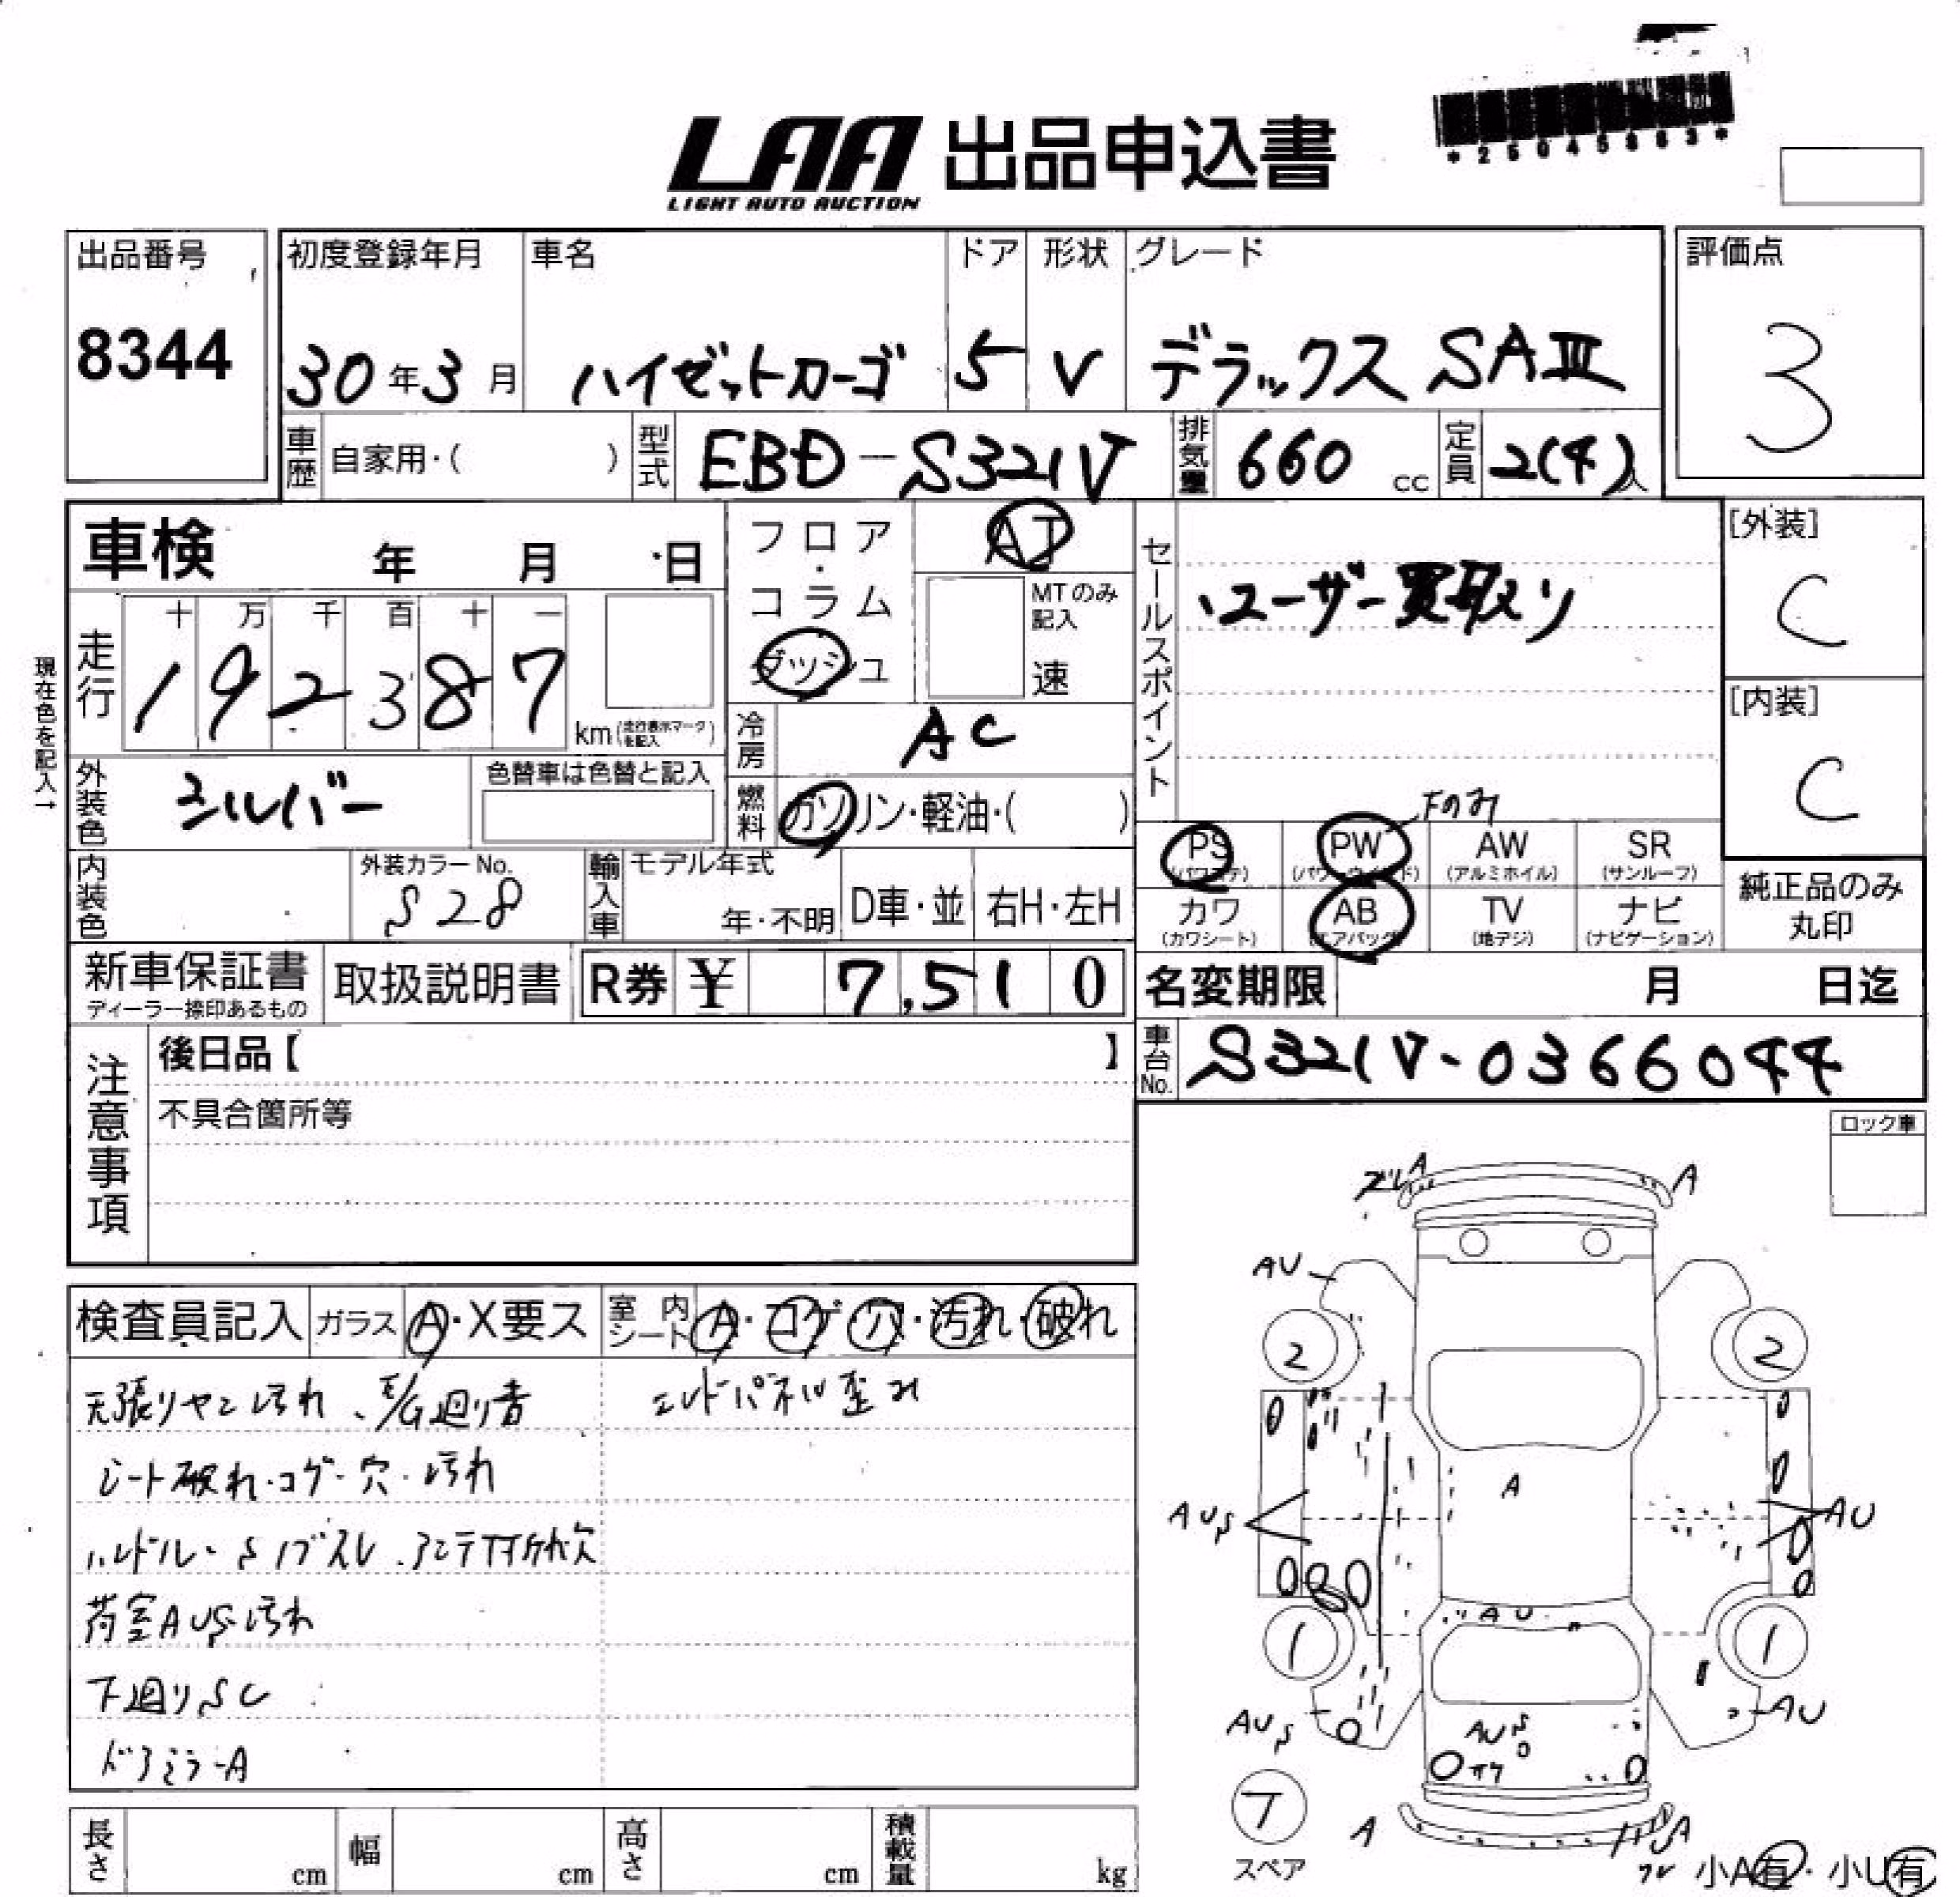 *25045883*
LAA 出品申込書
LIGHT AUTO AUCTION
出品番号
8344
初度登録年月
30年3月
車名
ハイゼットカーゴ
ドア
5
形状
V
グレード
デラックス SAⅢ
評価点
3
車歴 自家用・( )
型式 EBD-S321V
排気量 660 cc
定員 2(4)人
車検 年 月 日
フロア・コラム
ダッシュ
AT
MTのみ記入
速
セールスポイント
ユーザー買取り
[外装]
C
[内装]
C
現在色を記入→
走行 十 万 千 百 十 一
192387 km(走行表示マークを記入)
冷房 AC
外装色 シルバー
色替車は色替と記入
燃料 ガソリン・軽油・( )
Fのみ
PS (パワステ)
PW (パワーウインド)
AW (アルミホイル)
SR (サンルーフ)
カワ (カワシート)
AB (エアバッグ)
TV (地デジ)
ナビ (ナビゲーション)
純正品のみ
丸印
内装色
外装カラーNo.
S28
輸入車 モデル年式
年・不明 D車・並 右H・左H
新車保証書
ディーラー捺印あるもの
取扱説明書
R券 ¥ 7,510
名変期限 月 日迄
車台No. S321V-0366044
注意事項
後日品【 】
不具合箇所等
ロック車
検査員記入 ガラス A・X要ス 室内シート A・コゲ・穴・汚れ・破れ
天張りヤニ汚れ、E/G廻り音
エンドパネル歪み
シート破れ・コゲ・穴・汚れ
ハンドル・Sノブスレ
荷室AUS汚れ
下廻りSC
ドアミラーA
ズレ A A
AU
2 2
A
AUS AU
AU
1 1
AUS AU
AUS
T
スペア
A A
小A有・小U有
長さ cm 幅 cm 高さ cm 積載量 kg